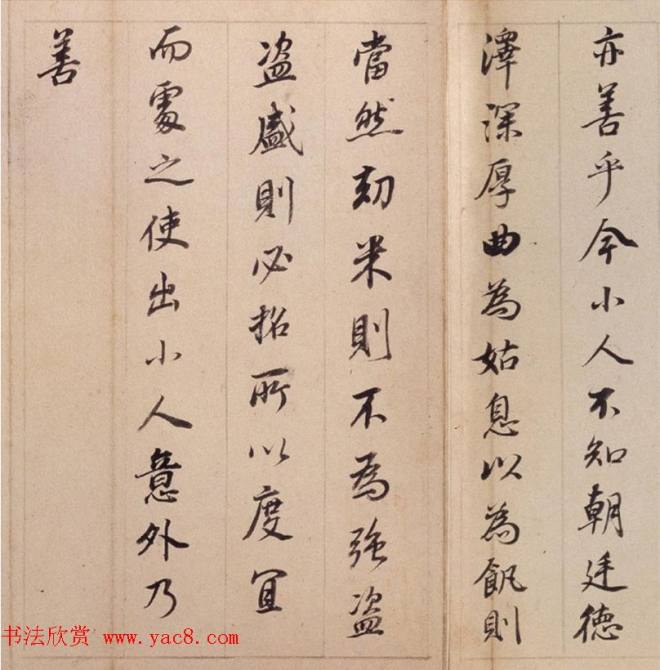 亦善乎今小人不知朝廷德
澤深厚曲為姑息以為飢則
當然劫米則不為強盗
盗盛則必招所以度宜
而處之使出小人意外乃
善
书法欣赏 www.yac8.com